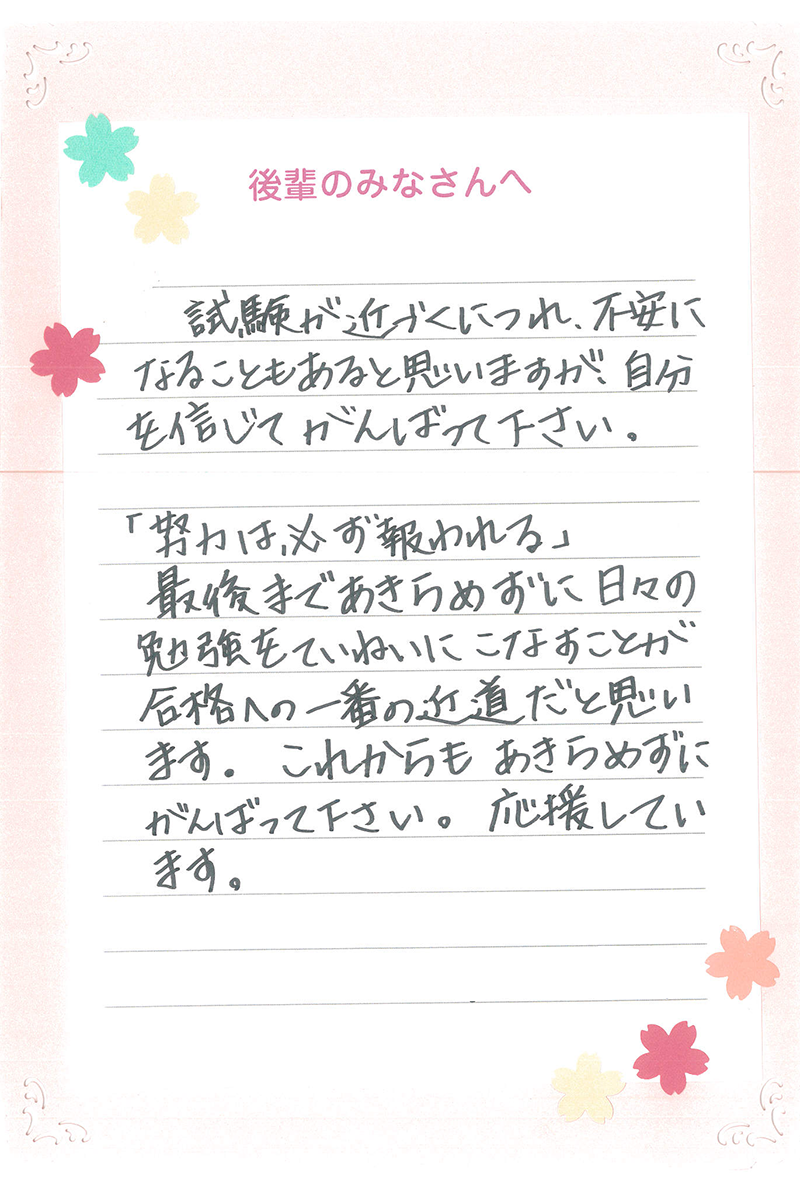 後輩のみなさんへ
試験が近づくにつれ、不安に
なることもあると思いますが、自分
を信じてがんばって下さい。
「努力は必ず報われる」
最後まであきらめずに日々の
勉強をていねいにこなすことが
合格への一番の近道だと思い
ます。これからもあきらめずに
がんばって下さい。応援してい
ます。